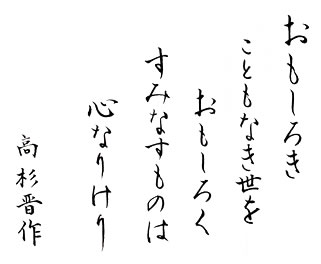 おもしろき
こともなき世を
おもしろく
すみなすものは
心なりけり
高杉晋作